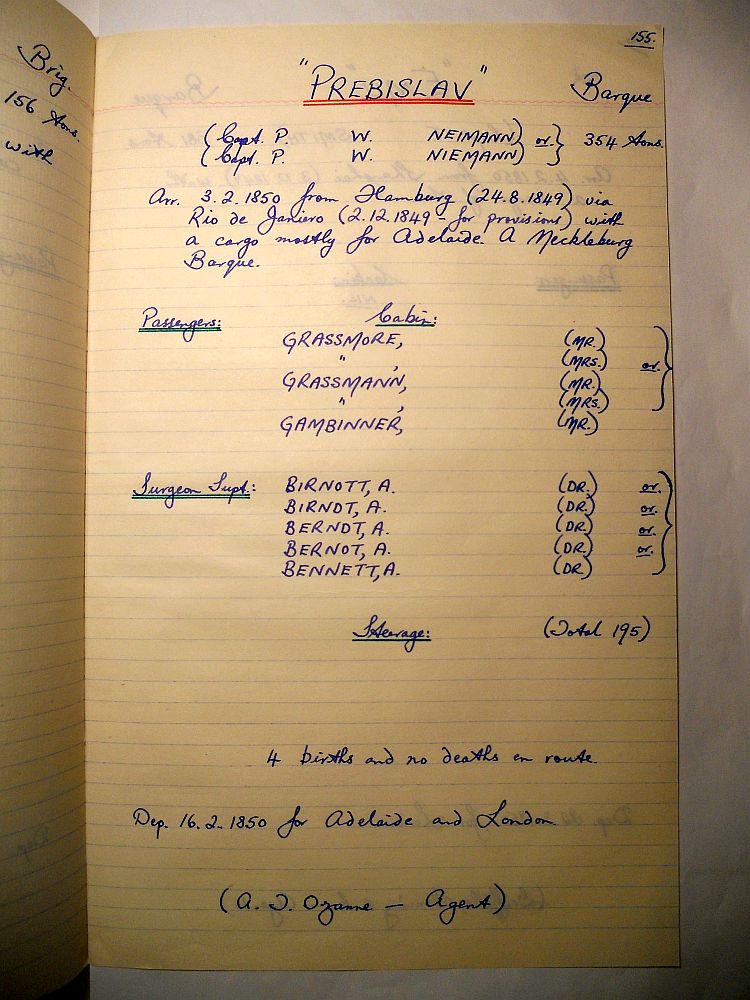 Brig.
156 tons.
with
155.
"PREBISLAV" Barque
(Capt. P. W. NEIMANN) or. } 354 tons.
(Capt. P. W. NIEMANN)
Arr. 3.2.1850 from Hamburg (24.8.1849) via
Rio de Janiero (2.12.1849 - for provisions) with
a cargo mostly for Adelaide. A Meckleburg
Barque.
Passengers: Cabin:
GRASSMORE, (MR.)
" , (MRS.) or.
GRASSMANN, (MR.)
" , (MRS.)
GAMBINNER, (MR.)
Surgeon Supt.: BIRNOTT, A. (DR.) or.
BIRNDT, A. (DR.) or.
BERNDT, A. (DR.) or.
BERNOT, A. (DR.) or.
BENNETT, A. (DR.)
Steerage: (Total 195)
4 births and no deaths en route.
Dep. 16.2.1850 for Adelaide and London.
(A. J. Ozanne — Agent)